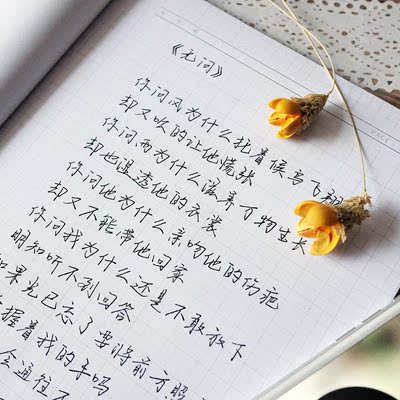 《无问》
你问风为什么托着候鸟飞翔
却又吹的让他慌张
你问雨为什么滋养万物生长
却也湿透他的衣裳
你问他为什么亲吻他的伤疤
却又不能带他回家
你问我为什么还是不敢放下
明知听不到回答
如果光已忘了要将前方照
握着我的手吗
会通往